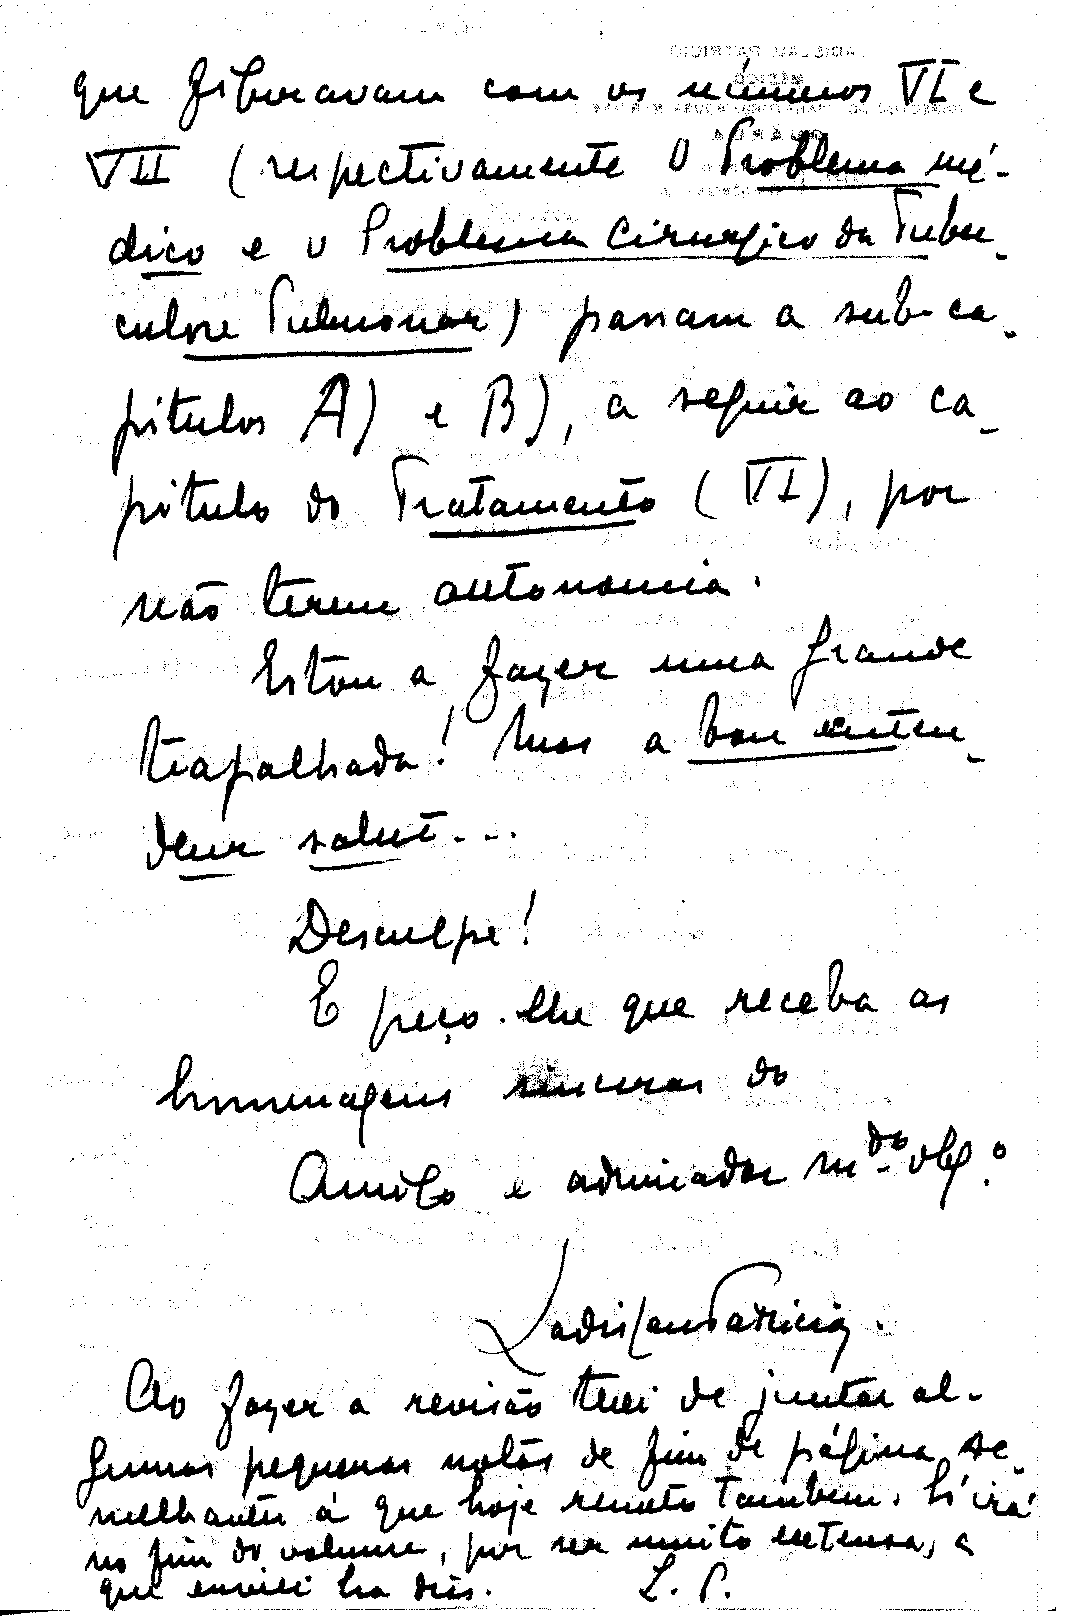 que figuravam com os números VI e
VII (respectivamente O Problema mé-
dico e o Problema Cirurgico da Tuber-
culose Pulmonar) passam a sub-ca-
pitulos A) e B), a seguir ao ca-
pitulo do Tratamento (VI), por
não terem autonomia.
Estou a fazer uma grande
trapalhada! Mas a bon enten-
deur salut...
Desculpe!
E peço-lhe que receba as
homenagens sinceras do
Amigo e admirador m.do obg.o
Ladislau Patricio.
Ao fazer a revisão tive de juntar al-
gumas pequenas notas de fim de página, se-
melhantes á que hoje remeto tambem. Só irá
no fim do volume, por ser muito extensa, a
que enviei ha dias. L. P.